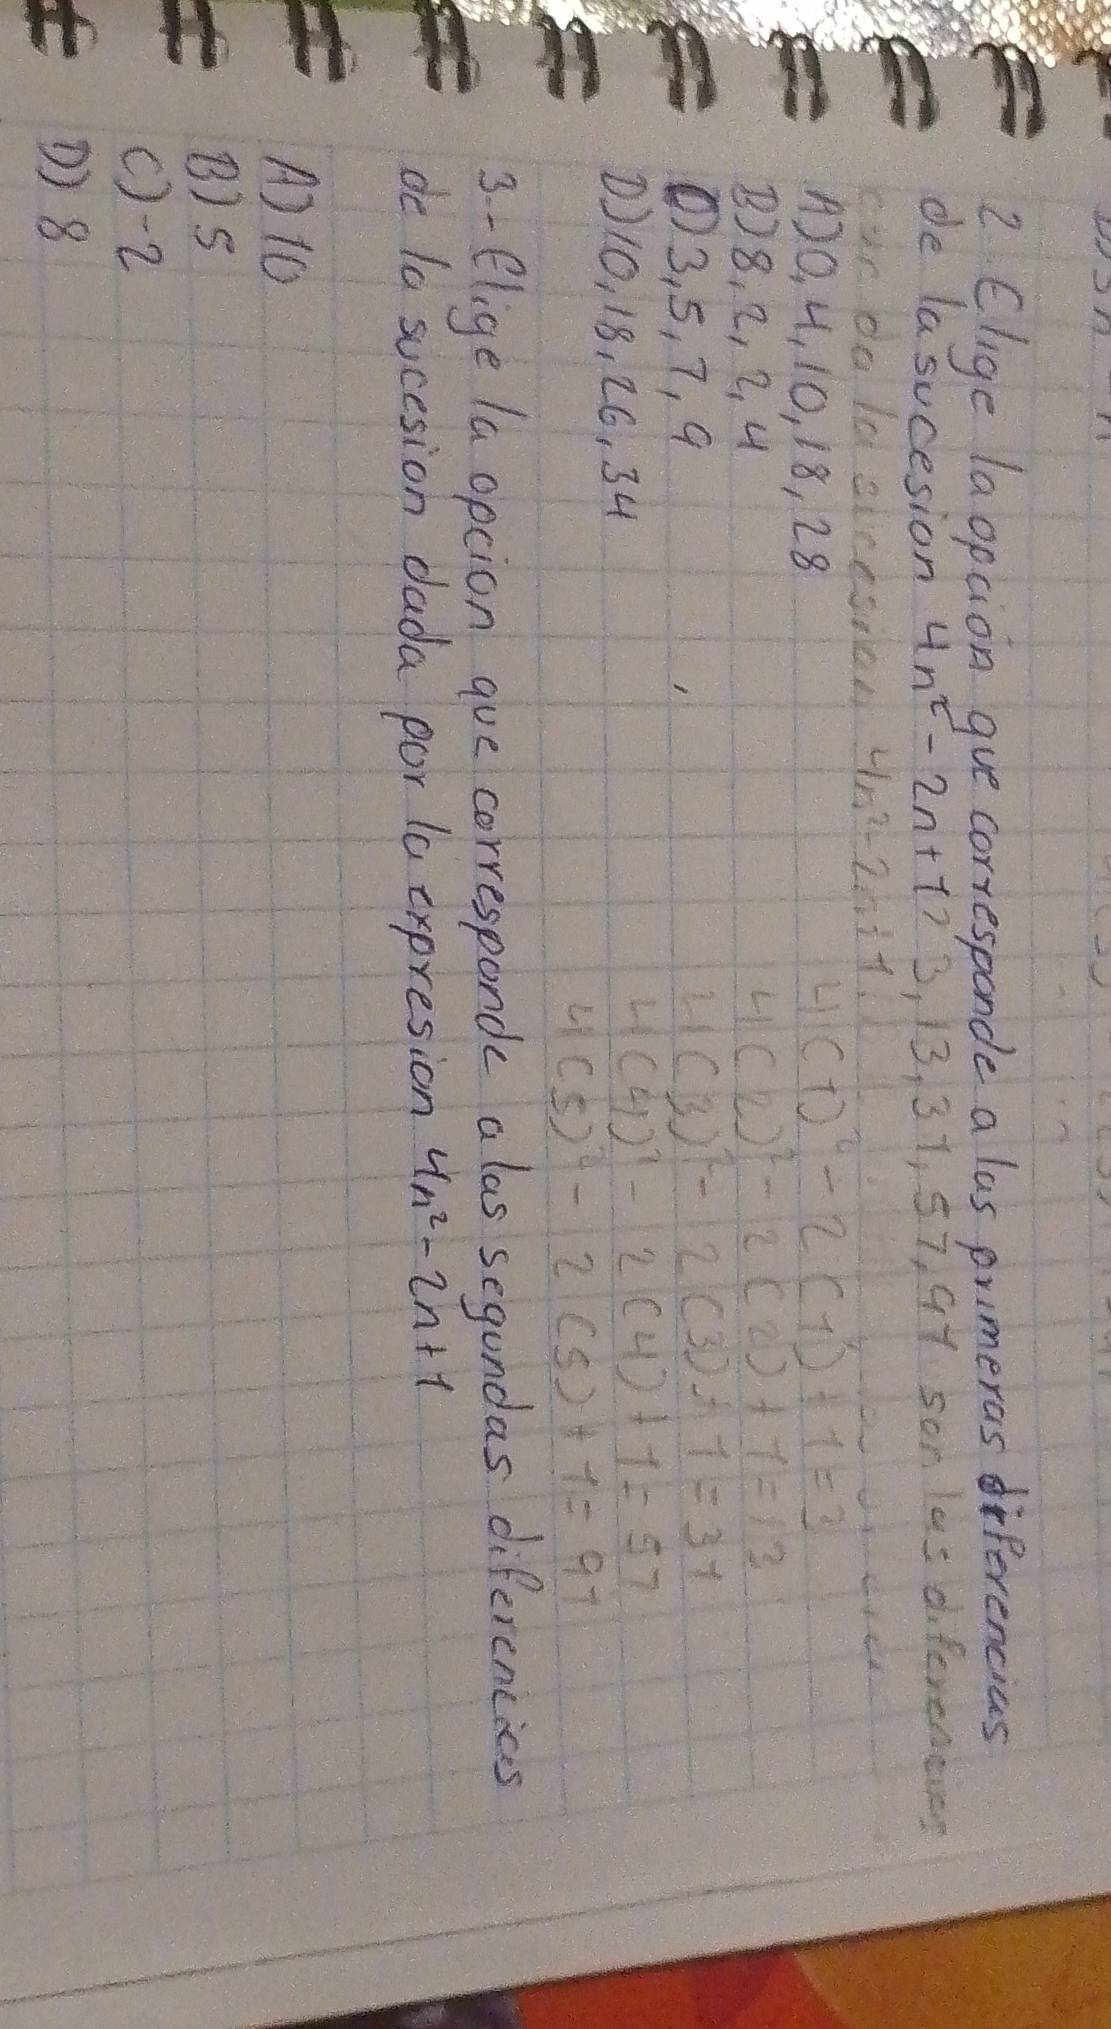 2.- Elige la opción que corresponde a las primeras diferencias
de la sucesion 4n²-2n+1? 3,13,31,57,91 son las diferencias
que da la sucesion 4n²-2n+1
A)0,4,10,18,28
B)8,2,2,4
C)3,5,7,9
D)10,18,26,34
4(1)²-2(1)+1=3
4(2)²-2(2)+1=13
4(3)²-2(3)+1=31
4(4)²-2(4)+1=57
4(5)²-2(5)+1=91
3.- Elige la opcion que corresponde a las segundas diferencias
de la sucesion dada por la expresion 4n²-2n+1
A)10
B)5
C)-2
D)8